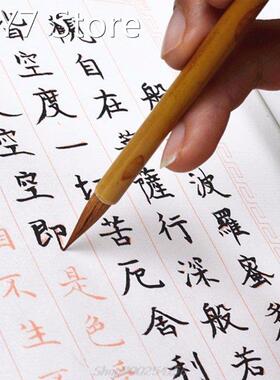 Y7 Store
般波羅蜜
觀自在菩薩行深般若
皆空度一切苦厄舍利
空空即是色
不生不